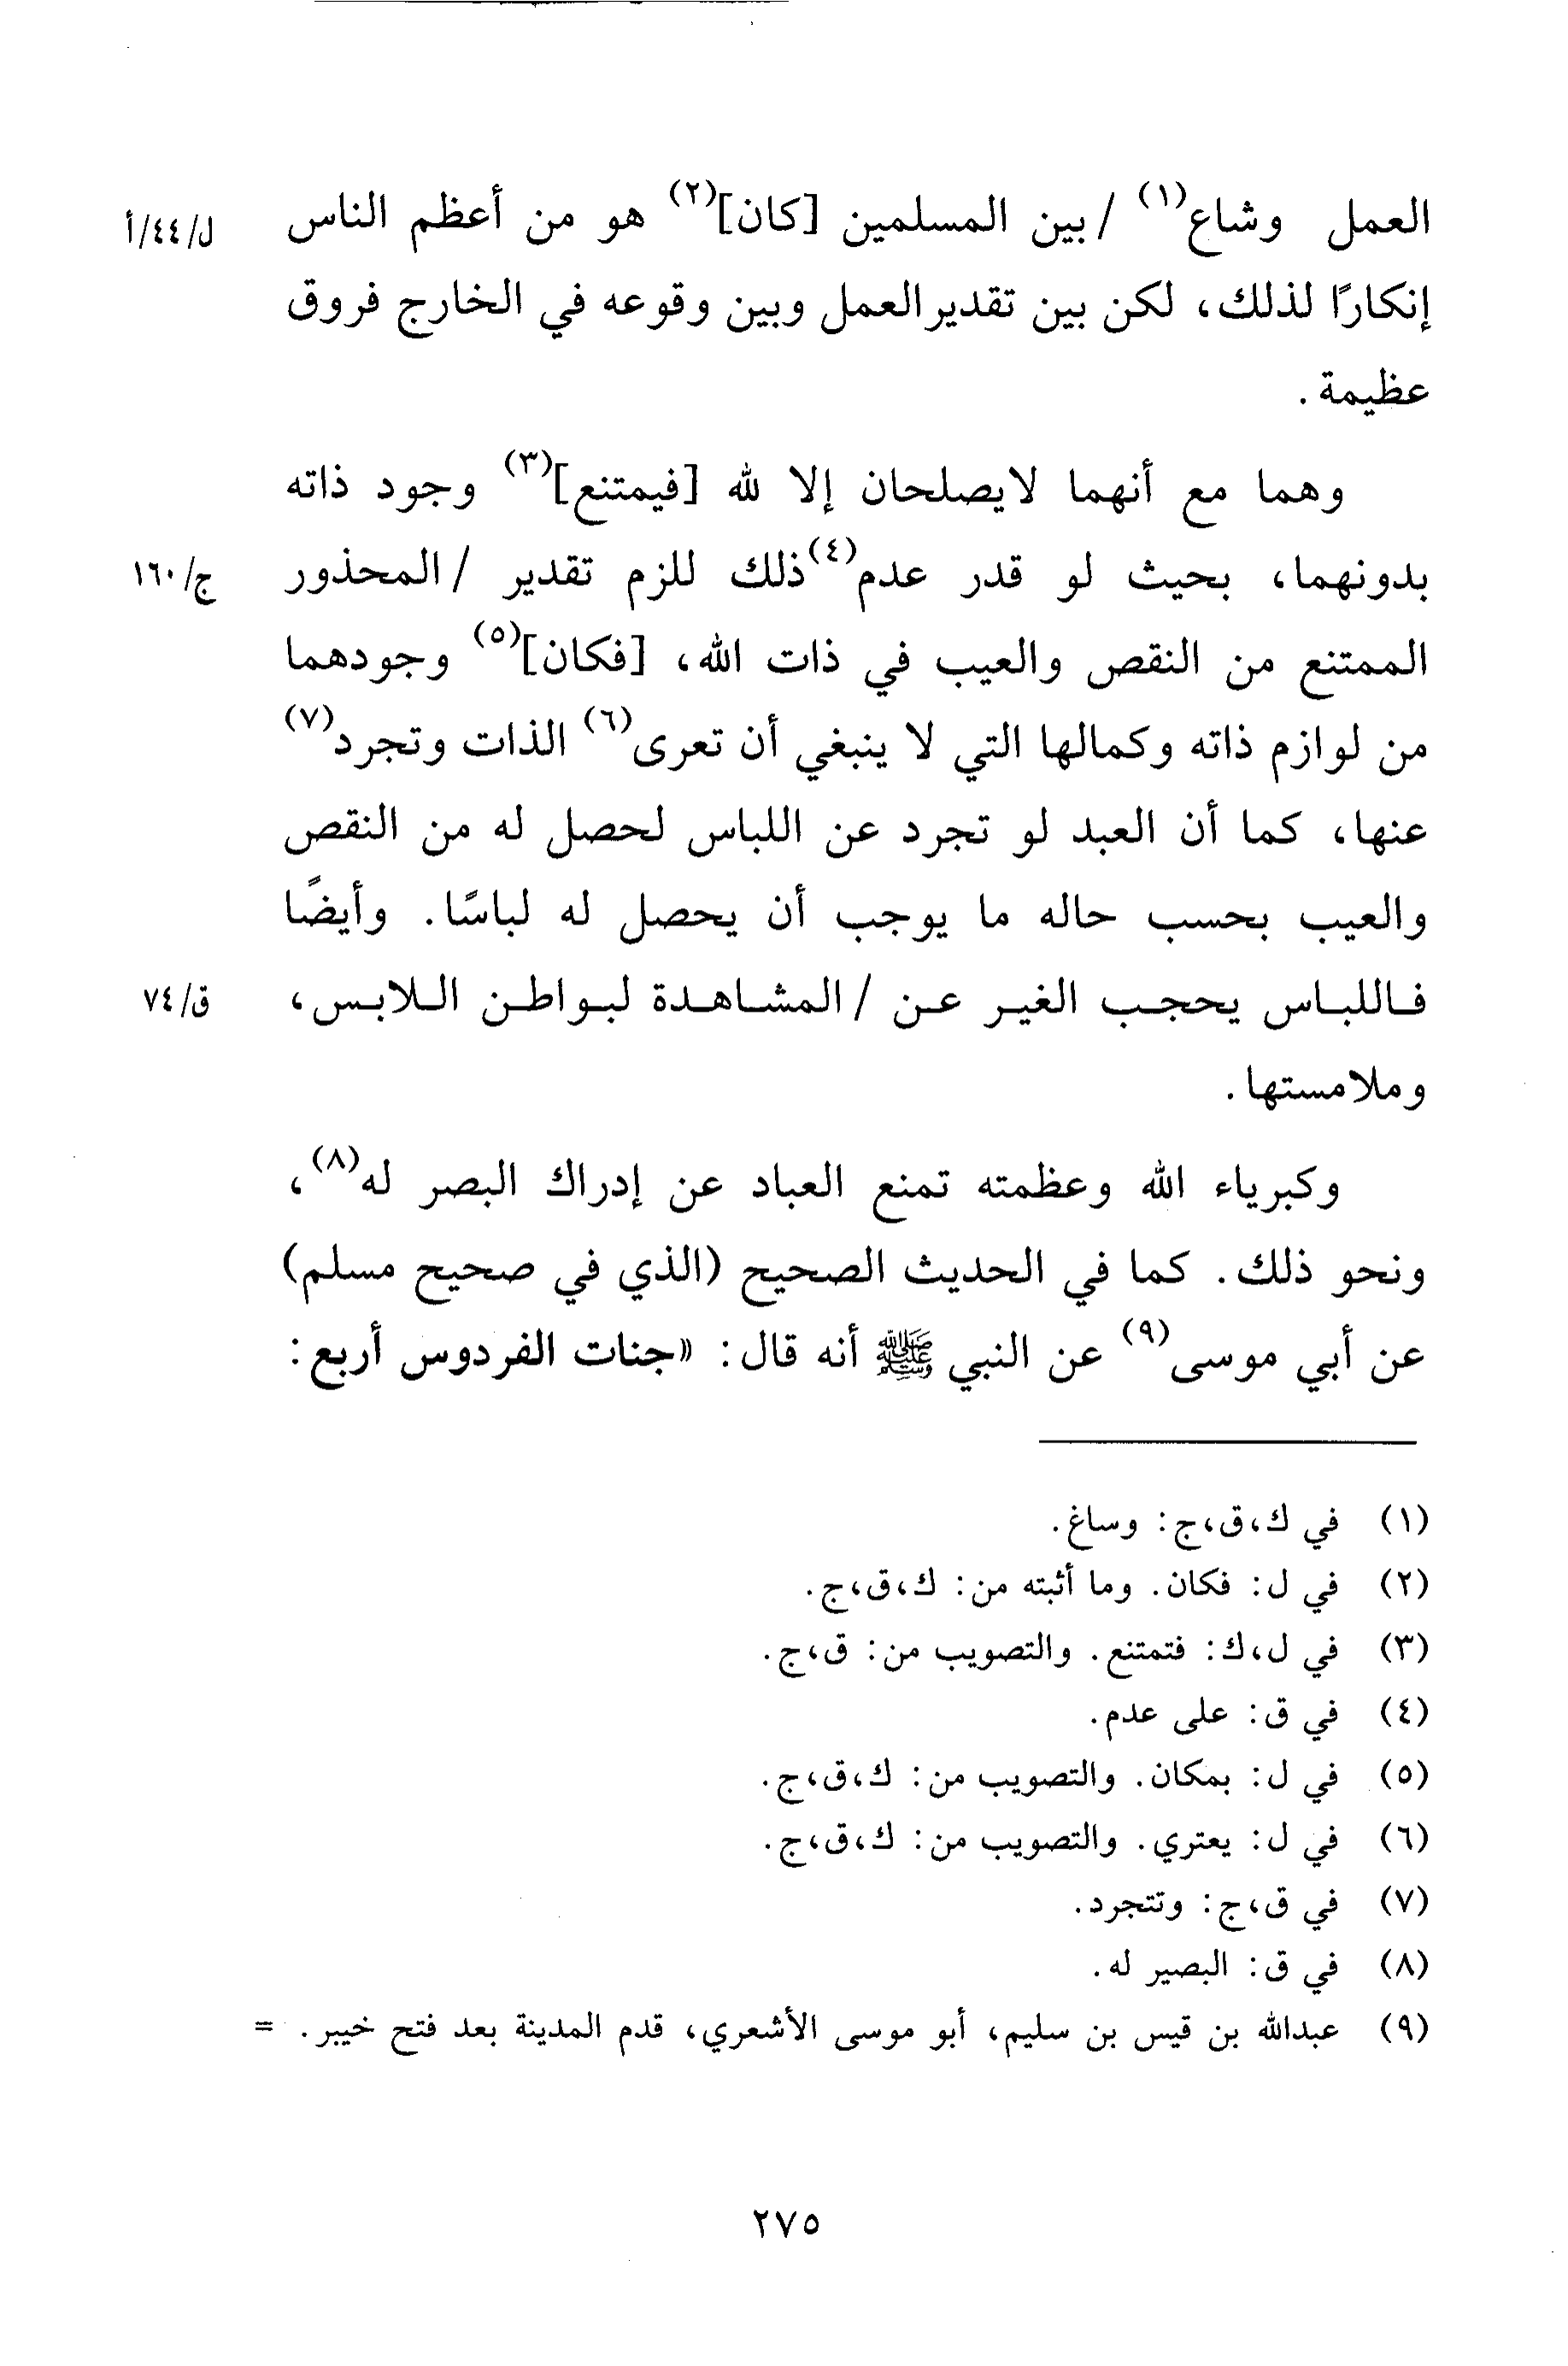 العمل وشاع(١) / بين المسلمين [كان](٢) هو من أعظم الناس ل/٤٤/أ
إنكارًا لذلك، لكن بين تقدير العمل وبين وقوعه في الخارج فروق
عظيمة.
وهما مع أنهما لايصلحان إلا لله [فيمتنع](٣) وجود ذاته
بدونهما، بحيث لو قدر عدم(٤) ذلك للزم تقدير /المحذور ج/١٦٠
الممتنع من النقص والعيب في ذات الله، [فكان](٥) وجودهما
من لوازم ذاته وكمالها التي لا ينبغي أن تعرى(٦) الذات وتجرد(٧)
عنها، كما أن العبد لو تجرد عن اللباس لحصل له من النقص
والعيب بحسب حاله ما يوجب أن يحصل له لباسًا. وأيضًا
فاللباس يحجب الغير عن /المشاهدة لبواطن اللابس، ق/٧٤
وملامستها.
وكبرياء الله وعظمته تمنع العباد عن إدراك البصر له(٨)،
ونحو ذلك. كما في الحديث الصحيح (الذي في صحيح مسلم)
عن أبي موسى(٩) عن النبي ﷺ أنه قال: «جنات الفردوس أربع:
(١) في ك،ق،ج: وساغ.
(٢) في ل: فكان. وما أثبته من: ك،ق،ج.
(٣) في ل،ك: فتمتنع. والتصويب من: ق،ج.
(٤) في ق: على عدم.
(٥) في ل: بمكان. والتصويب من: ك،ق،ج.
(٦) في ل: يعتري. والتصويب من: ك،ق،ج.
(٧) في ق،ج: وتتجرد.
(٨) في ق: البصير له.
(٩) عبدالله بن قيس بن سليم، أبو موسى الأشعري، قدم المدينة بعد فتح خيبر. =
٢٧٥